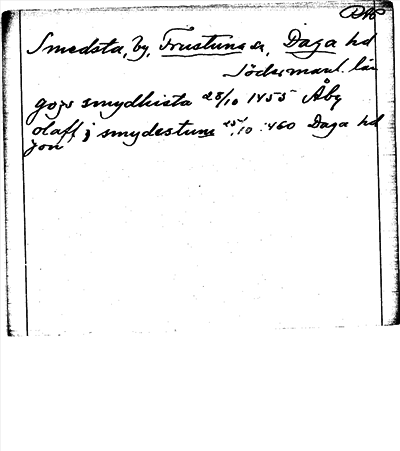 Smedsta, by, Frustuna sn, Daga hd
Södermanl. län
gozs smydhista 28/10 1455 Åby
olaff j smydestune 15/10 1460 Daga hd
jon